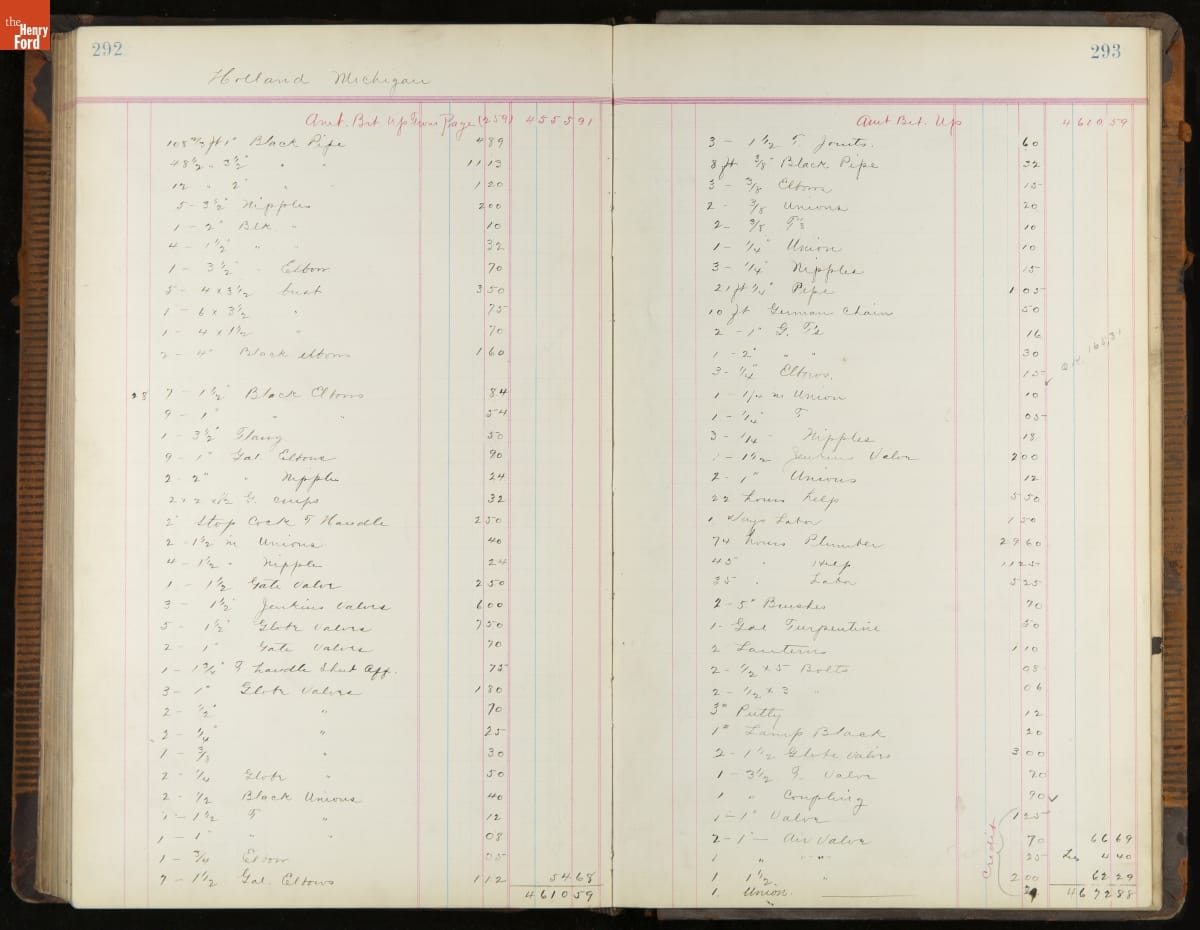 the Henry Ford
292
Holland Michigan
Amt. Brt Up from Page (259) 4555 91
108 ft 1" Black Pipe 4 89
48½ " 3½" " 11 13
12 " 2" " 1 20
5 - 3½" Nipples 2 00
1 - 2" Blk. " 10
4 - 1½" " " 32
1 - 3½" " Elbow 70
5 - 4 x 3½ bush 3 50
1 - 6 x 3½ " 75
1 - 4 x 1½ " 70
2 - 4" Black elbows 1 60
28 7 - 1½" Black Elbows 84
9 - 1" " " 54
1 - 3½" Flang 50
9 - 1" Gal. Elbows 90
2 - 2" " Nipples 24
2 x 2 G. cups 32
2" Stop Cock T Handle 2 50
2 - 1½ m Unions 40
4 - 1½ " Nipple 24
1 - 1½" Gate Valve 2 50
3 - 1½" Jenkins Valves 6 00
5 - 1½" Globe Valves 7 50
2 - 1" Gate Valves 70
1 - 1¾" T handle Shut Aff. 75
3 - 1" Globe Valves 1 80
2 - ½" " 70
2 - ¼" " 25
1 - ⅜ " 30
2 - ¼ Globe " 50
2 - ½ Black Unions 40
1 - 1½ T " 12
1 - 1" " " 08
1 - ¾ Elbow 05
7 - 1½ Gal. Elbows 1 12 54 68
4610 59
293
Amt Bet. Up 4610 59
3 - 1½ T. Joints. 60
8 ft ⅜" Black Pipe 32
3 - ⅜ Elbows 15
2 - ⅜ Unions 20
2 - ⅜ T's 10
1 - ¼" Union 10
3 - ¼" Nipples 15
21 ft ¼" Pipe 1 05
10 ft German Chain 50
2 - 1" G. T's 16
1 - 2" " " 30
3 - ¼" Elbows. 15
1 - 1/4 m Union 10
1 - ¼" T 05
3 - 1/4 - Nipples 18
1 - 1½ Jenkins Valve 2 00
2 - 1" Unions 12
22 hours help 5 50
1 Days Labor 1 50
74 hours Plumber 29 60
45 " Help 11 25
35 " Labor 5 25
2 - 5" Brushes 70
1 - Gal Turpentine 50
2 Lanterns 1 10
2 - ½ x 5 Bolts 08
2 - ½ x 3 " 06
3# Putty 12
1# Lamp Black 20
2 - 1½ Globe Valves 3 00
1 - 3½ T. Valve 70
1 " Coupling 90
1 - 1" Valve 1 25
2 - 1" - Air Valve 70 66 69
1 " " 25 Les 4 40
1 1½ " 2 00 62 29
1 Union. 4672 88
Credit